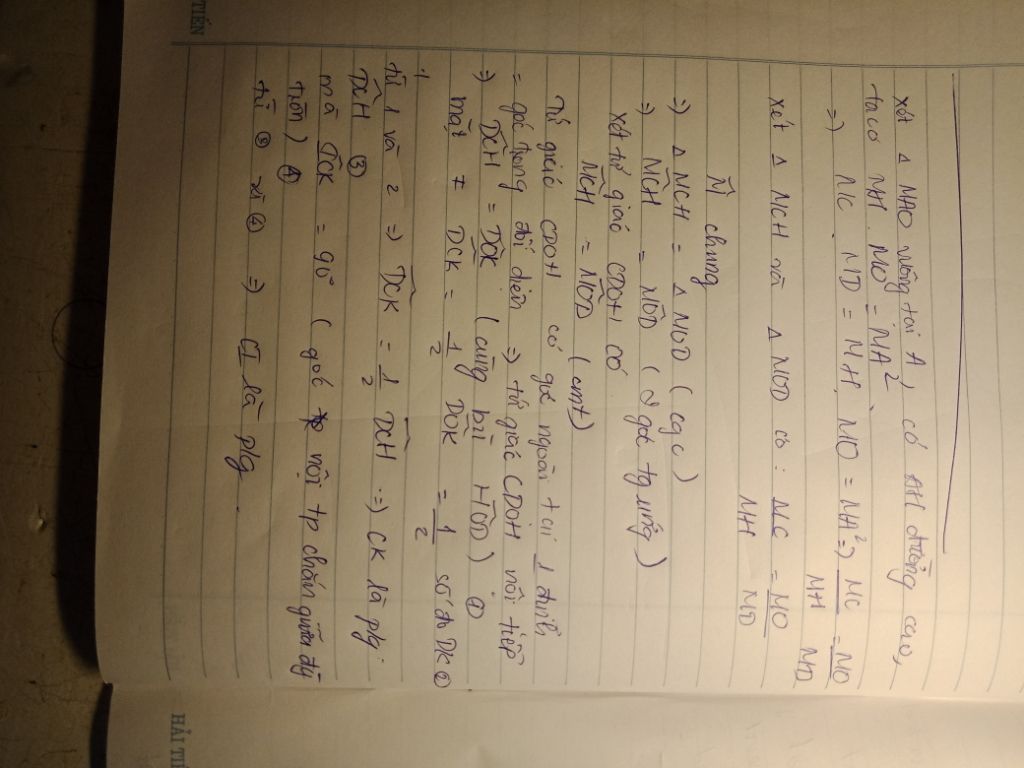 TIẾN
xét Δ MAO vuông tại A, có AH đường cao,
ta có MH. MO = MA²
=) MC. MD = MH. MO = MA² =) MC/MH = MO/MD
xét Δ MCH và Δ MOD có : MC/MH = MO/MD
M̂ chung
=) Δ MCH = Δ MOD (cgc)
=) MCH = MOD ( 2 góc tg ứng )
xét tứ giác CDOH có
MCH = MOD (cmt)
Tứ giác CDOH có góc ngoài tại 1 đỉnh
= góc trong đối diện =) tứ giác CDOH nội tiếp
=) DCH = DOK ( cùng bù HOD) ①
mặt ≠ DCK = 1/2 DOK = 1/2 số đo DK ②
từ 1 và 2 =) DCK = 1/2 DCH =) CK là p/g
DCH ③
mà ICK = 90° ( góc nội tp chắn giữa đg
tròn) ④
từ ③ và ④ =) CI là p/g.
HẢI TI